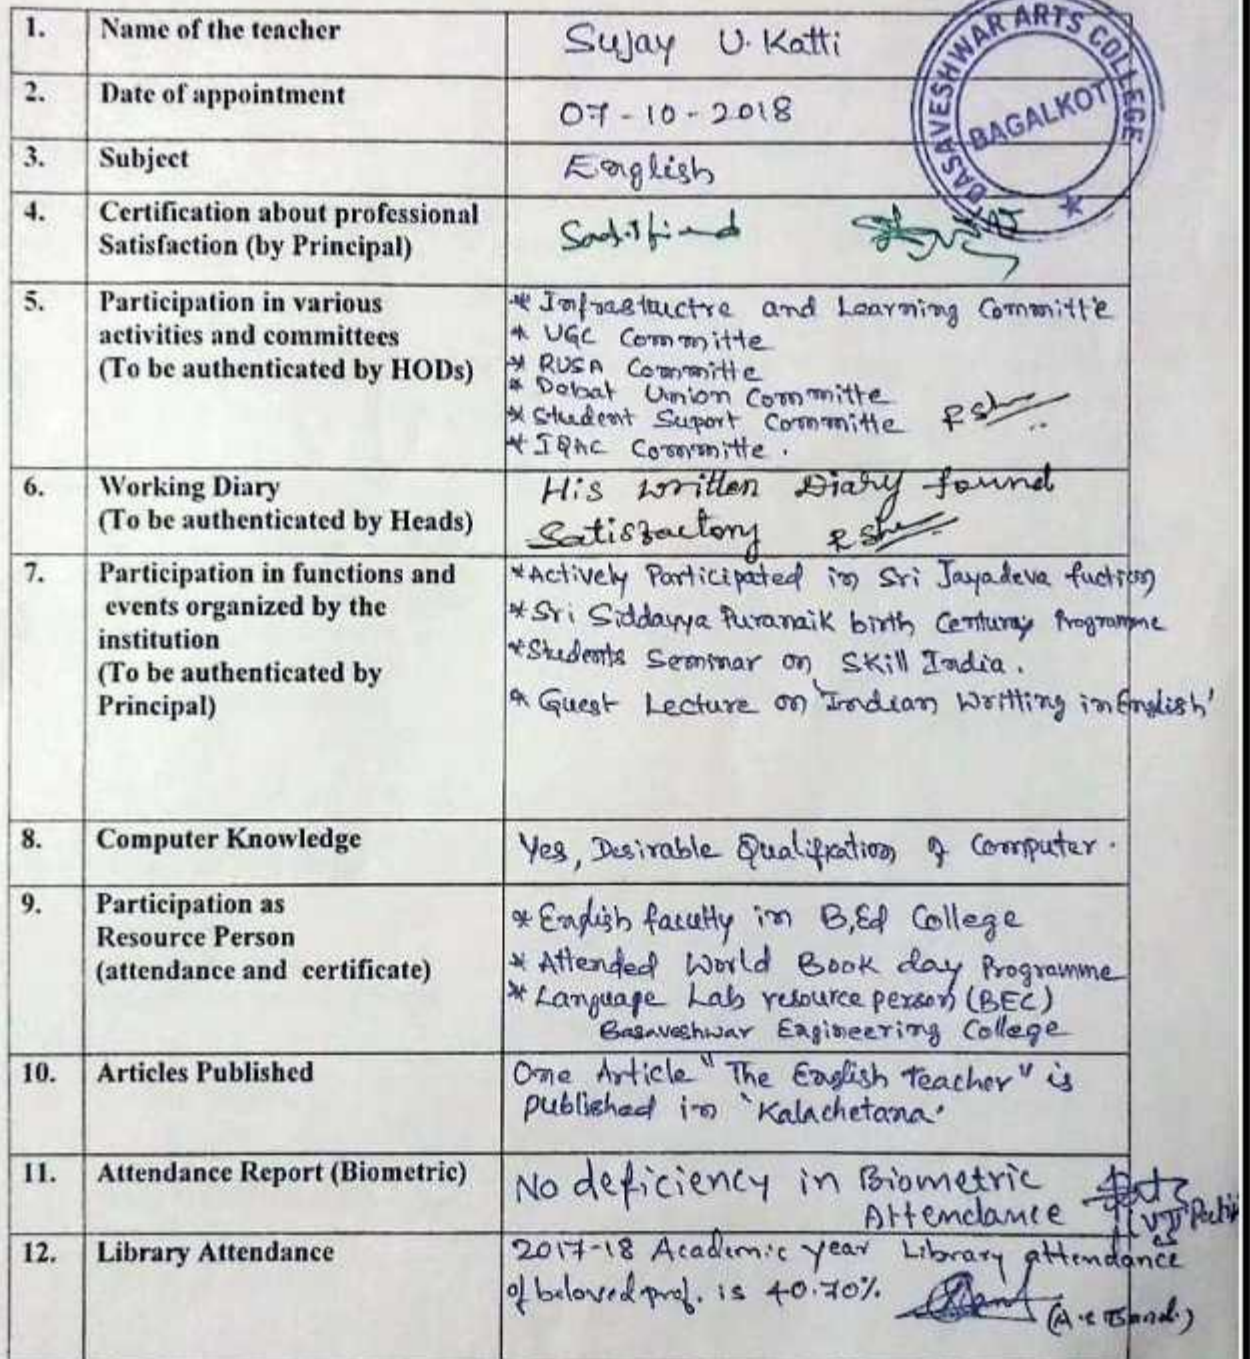 BASAVESHWAR ARTS COLLEGE
BAGALKOT
1. Name of the teacher Sujay U. Katti
2. Date of appointment 07-10-2018
3. Subject English
4. Certification about professional
Satisfaction (by Principal)
5. Participation in various
activities and committees
(To be authenticated by HODs)
* Infrastuctre and Learning Committe
* UGC Committe
* RUSA Committe
* Debat Union Committe
* Student Suport Committe
* IQAC Committe.
6. Working Diary
(To be authenticated by Heads)
His written Diary found
Satisfactory
7. Participation in functions and
events organized by the
institution
(To be authenticated by
Principal)
*Actively Participated in Sri Jayadeva fuction
*Sri Siddayya Puranaik birth Centuray Programme
*Students Seminar on Skill India.
* Guest Lecture on 'Indian Writting in English'
8. Computer Knowledge Yes, Desirable Qualification of Computer.
9. Participation as
Resource Person
(attendance and certificate)
* English faculty in B,Ed College
* Attended World Book day Programme
* Language Lab resource person (BEC)
Basaveshwar Engineering College
10. Articles Published
One Article "The English teacher" is
published in 'Kalachetana'
11. Attendance Report (Biometric)
No deficiency in Biometric
Attendance
12. Library Attendance
2017-18 Academic year Library attendance
of beloved prof. is 40.70%